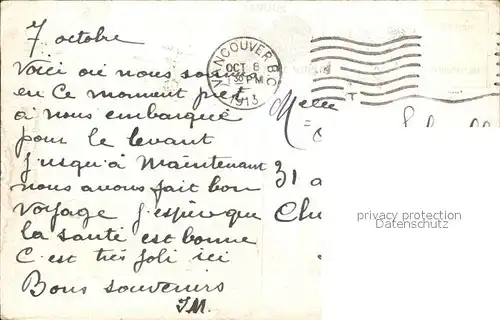 7 octobre
Voici où nous sommes
en ce moment pret
a nous embarqué
pour le levant
jusqu'à Maintenant
nous avons fait bon
voyage j'espère que
la santé est bonne
C'est très joli ici
Bons souvenirs
J.M.
VANCOUVER B.C.
OCT 8
PM
1913
T
Melle
31
privacy protection
Datenschutz